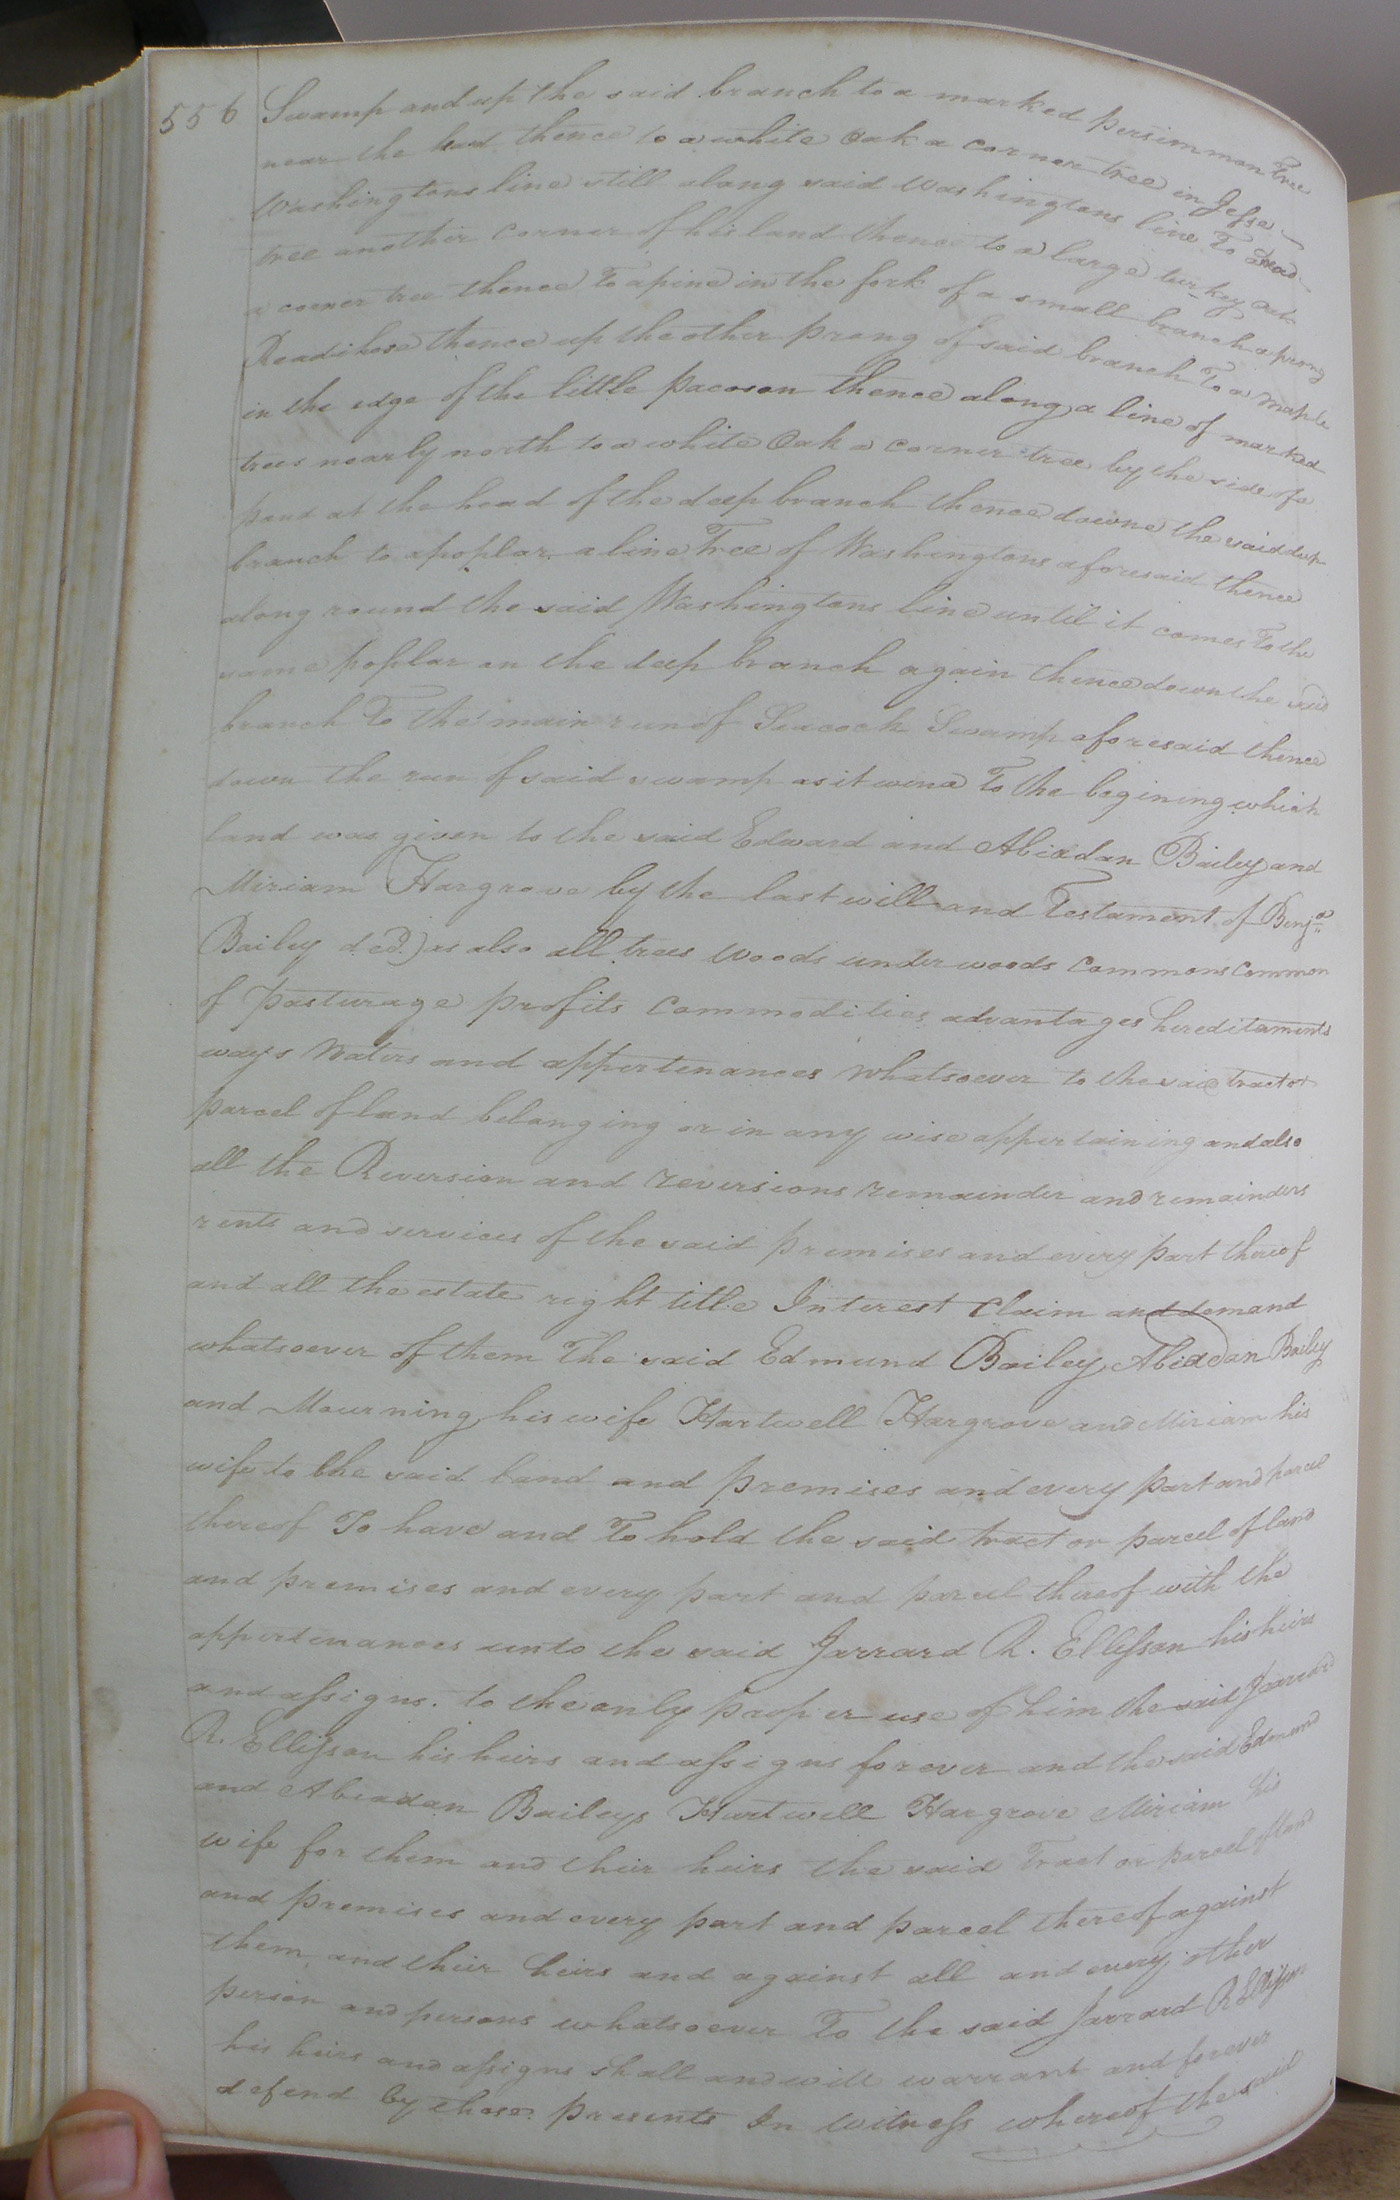 556
Swamp and up the said branch to a marked persimmon tree
near the head thence to a white Oak a corner tree in Jesse
Washingtons line still along said Washingtons line To a
tree another corner of his land thence to a large turkey oak
a corner tree thence To a pine in the fork of a small branch a prong
thence up the other prong of said branch To a maple
in the edge of the little pacoson thence along a line of marked
trees nearly north to a white Oak a corner tree by the side of a
pond at the head of the deep branch thence downe the said deep
branch to a poplar a line Tree of Washingtons aforesaid thence
along round the said Washingtons line until it comes To the
same poplar on the deep branch again thence down the said
branch To the main run of Seacock Swamp aforesaid thence
down the run of said swamp as it winds To the begining which
land was given to the said Edward and Abiadan Bailey and
Miriam Hargrove by the last will and Testament of Benja
Bailey decd.) as also all trees woods under woods commons common
of pasturage profits commodities advantages hereditaments
ways waters and appertenances whatsoever to the said tract or
parcel of land belonging or in any wise appertaining and also
all the Reversion and reversions remainder and remainders
rents and services of the said premises and every part thereof
and all the estate right title Interest claim and demand
whatsoever of them The said Edmund Bailey, Abiadan Bailey
and Mourning his wife Hartwell Hargrove and Miriam his
wife to the said land and premises and every part and parcel
thereof To have and To hold the said tract or parcel of land
and premises and every part and parcel thereof with the
appertenances unto the said Jarrard R. Ellisson his heirs
and assigns. to the only proper use of him the said Jarrard
R. Ellisson his heirs and assigns forever and the said Edmund
and Abiadan Baileys Hartwell Hargrove Miriam his
wife for them and their heirs the said Tract or parcel of land
and premises and every part and parcel thereof against
them and their heirs and against all and every other
person and persons whatsoever To the said Jarrard R Ellisson
his heirs and assigns shall and will warrant and forever
defend by these presents In witness whereof the said